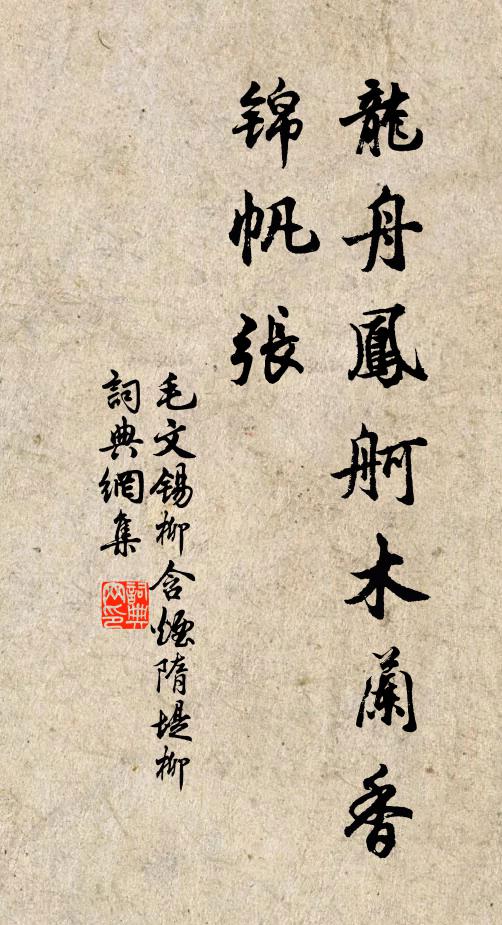 龍舟鳳舸木蘭香
錦帆張
毛文錫柳含煙隋堤柳
詞典網集
詞典
网印